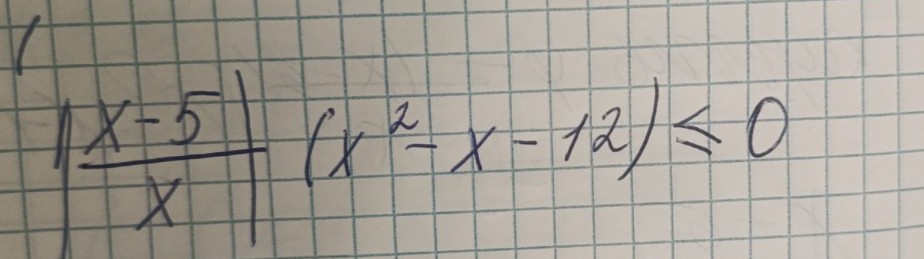 |x-5/x| (x²-x-12) ≤ 0